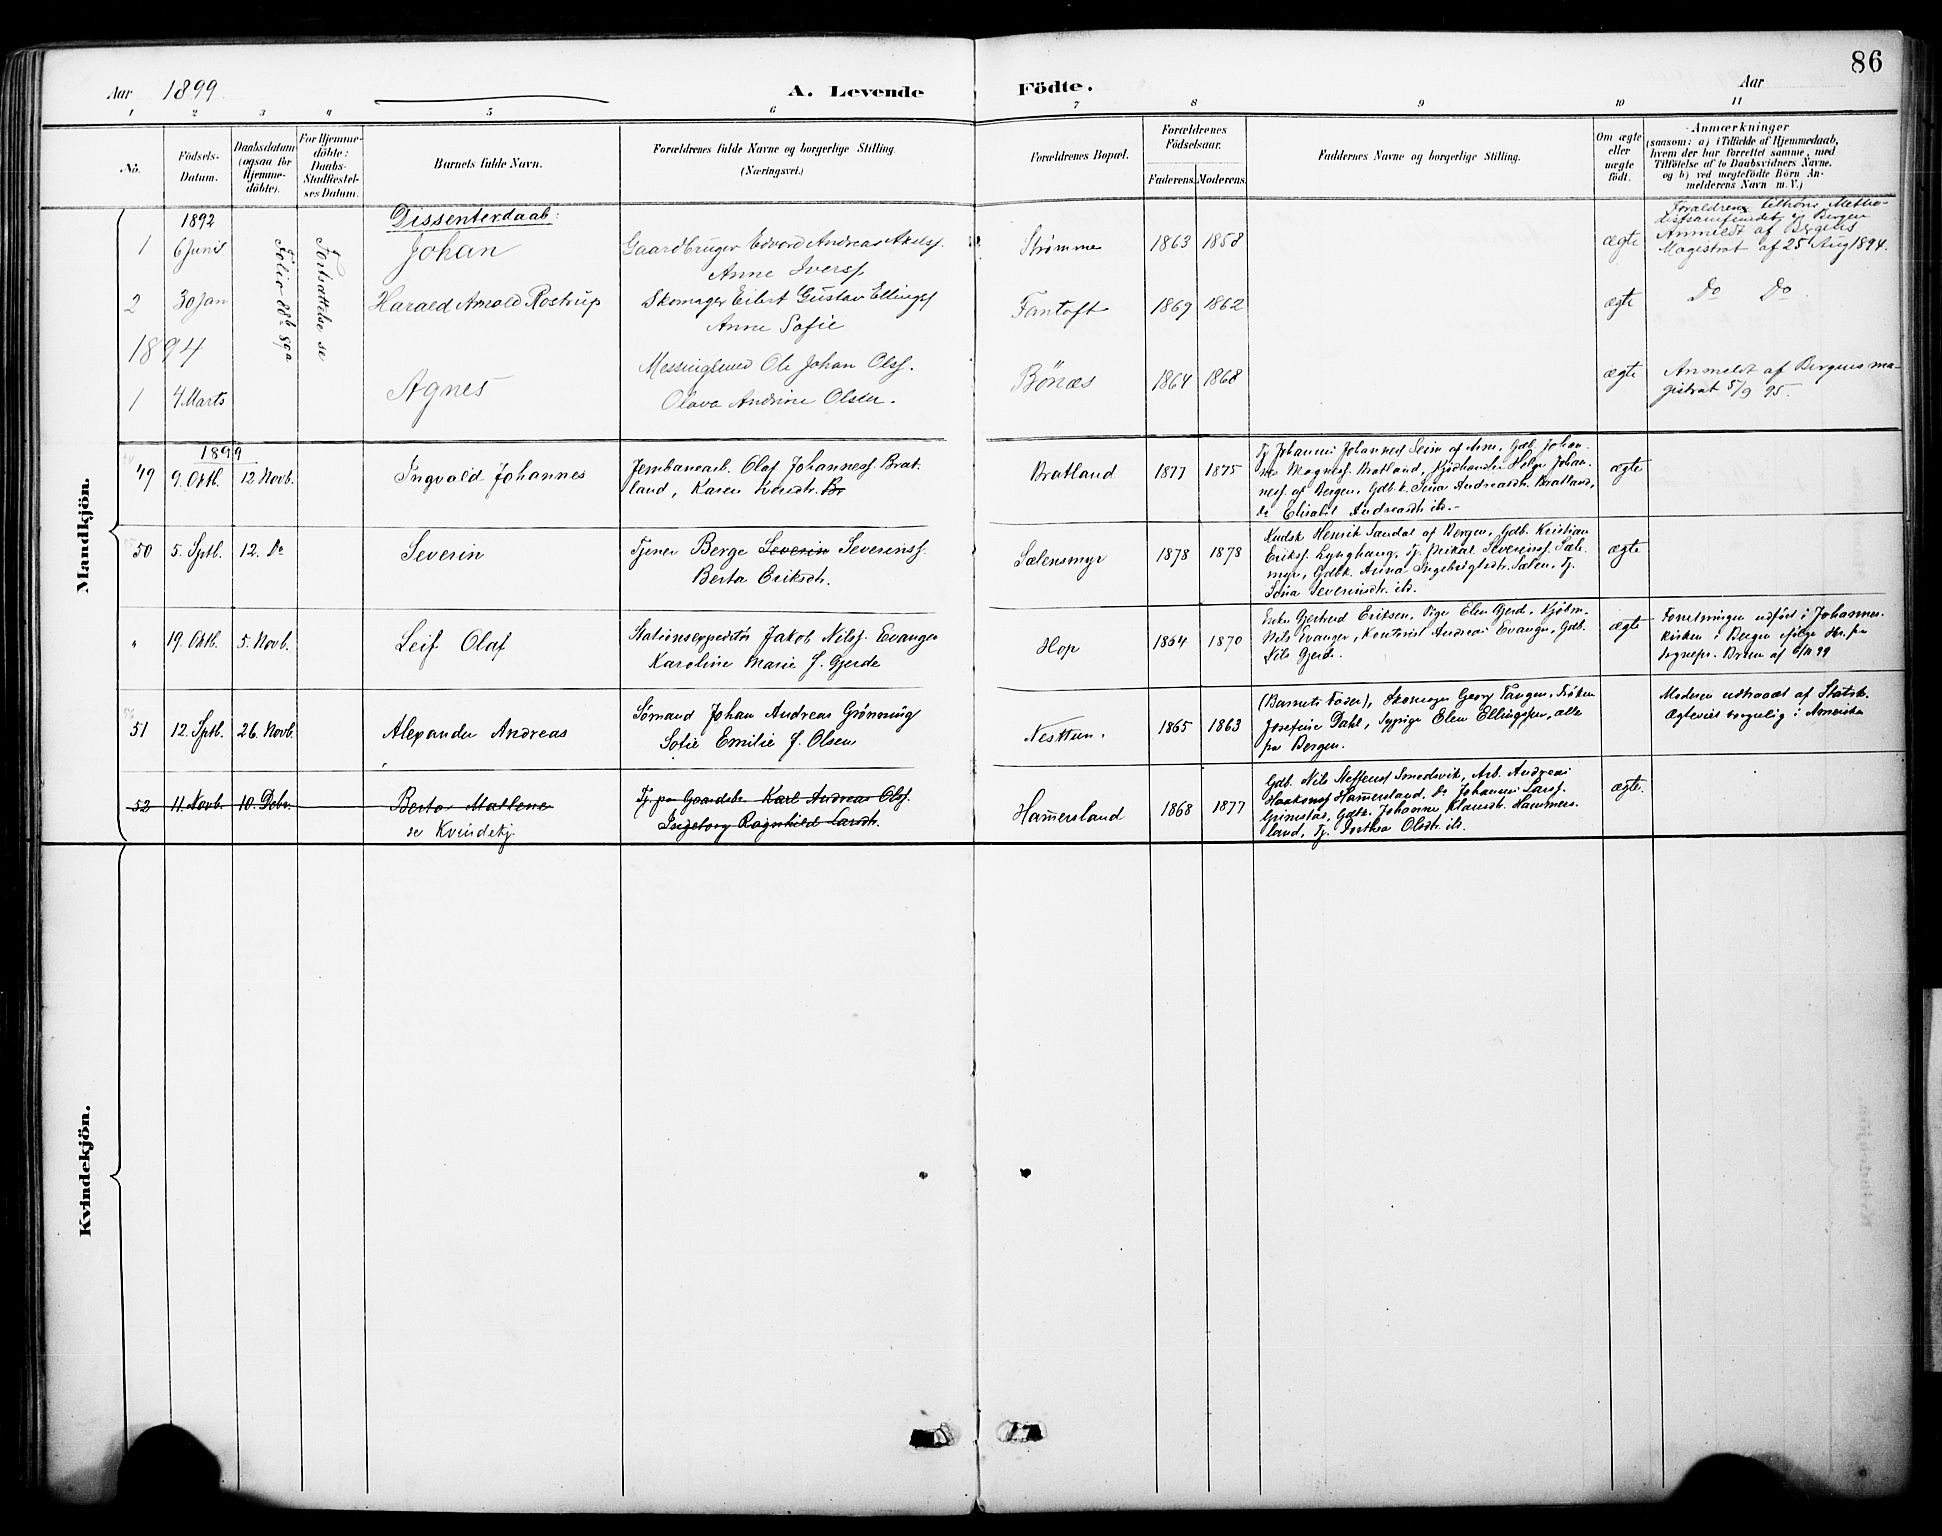 86
Aar 1899
A. Levende Födte.
Aar
1 2 3 4 5 6 7 8 9 10 11
No.
Födsels-Datum.
Daabsdatum (ogsaa for Hjemme-döbte).
For Hjemme-döbte: Daabs-Stadfæstel-ses Datum.
Barnets fulde Navn.
Forældrenes fulde Navne og borgerlige Stilling
(Næringsvei.)
Forældrenes Bopæl.
Forældrenes Födselsaar.
Faderens. Moderens.
Faddernes Navne og borgerlige Stilling.
Om ægte eller uægte födt.
Anmærkninger
(saasom: a) i Tilfælde af Hjemmedaab,
hvem der har forrettet samme, med
Tilföielse af to Daabsvidners Navne.
og b) ved uægtefödte Börn An-
melderens Navn m. V.)
Mandkjön.
1892
Dissenterdaab:
Folio 88b 89a
Fortsættelse se
1 6 Juni Johan
Gaardbruger Edvard Andreas Akselss.
Anne Iverss.
Strømme 1863 1858 ægte
Forældrene tilhøre Metho-
distsamfundet af Bergen
Anmeldt af Bergens
Magistrat af 25 Aug 1894.
2 30 Jan Harald Arnold Rostrup
Skomager Eilert Gustav Ellingss
Anne Sofie
Fantoft 1869 1862 ægte Do Do
1894
1 4 Marts Agnes
Messingsmed Ole Johan Olss.
Olava Andrine Olsdtr.
Bönæs 1864 1868 ægte
Anmeldt af Bergens ma-
gistrat 5/9 95.
1899
49 9. Oktb. 12 Novb. Ingvald Johannes
Jernbanearb. Olaf Johanness. Brat-
land, Karen Iversdtr. Br
Bratland 1877 1875
Tj. Johannes Johanness Seim af Arne, Gdb. Johan-
nes Magness. Bratland, Kjødhandler Helge Johan-
ness. af Bergen, Gdb.k. Sina Andreasdtr. Bratland,
Do Elisabet Andreasdtr. ibd.-
ægte
50 5. Sptb. 12. Do Severin
Tjener Berge Severin Severinss.
Berta Eriksdtr.
Sælensmyr 1878 1878
Kudsk Henrik Sandal af Bergen, Gdb. Kristian
Erikss. Lynghaug, Tj. Mikal Severinss. Sæl.
myr, Gdbk. Anna Ingebrigtsdtr. Sælen, Tj.
Sina Severinsdtr. ibd.
ægte
" 19. Oktb. 5. Novb. Leif Olaf
Stationsexpeditør Jakob Nilss. Evanger
Karoline Marie f. Gjerde
Hop 1864 1870
Enke Gjertrud Eriksen, Pige Elen Gjerd, Kjøbm.
Nils Evanger, Kontorist Andreas Evanger, Gdb.
Nils Gjerd.
ægte
Forretningen udført i Johannes-
kirken i Bergen ifølge Skr. fra
Sognepr. Bruun af 6/11 99
51 12. Sptb. 26. Novb. Alexander Andreas
Sømand Johan Andreas Grønning
Sofie Emilie f. Olsen
Nesttun. 1865 1863
(Barnets Fader), Skomager Georg Tangen, Frøken
Josefine Dahl, Sypige Elen Ellingsen, alle
fra Bergen.
Moderen udtraadt af Statsk.
Ægteviet borgerlig i Amerika
52 11. Novb. 10. Debr. Berta Matlene
se Kvindekj.
Tj. paa Gaardsbr. Karl Andreas Olss.
Ingeborg Ragnhild Larsdtr.
Hamersland 1868 1877
Gdb. Nils Steffenss Smedsvik, Arb. Andreas
Haakonss Hamersland, Do Johannes Larss.
Grimstad, Gdtr. Johanne Klausdtr. Hammers-
land, Tj. Dorthea Olsdtr. ibd.
ægte.
Kvindekjön.